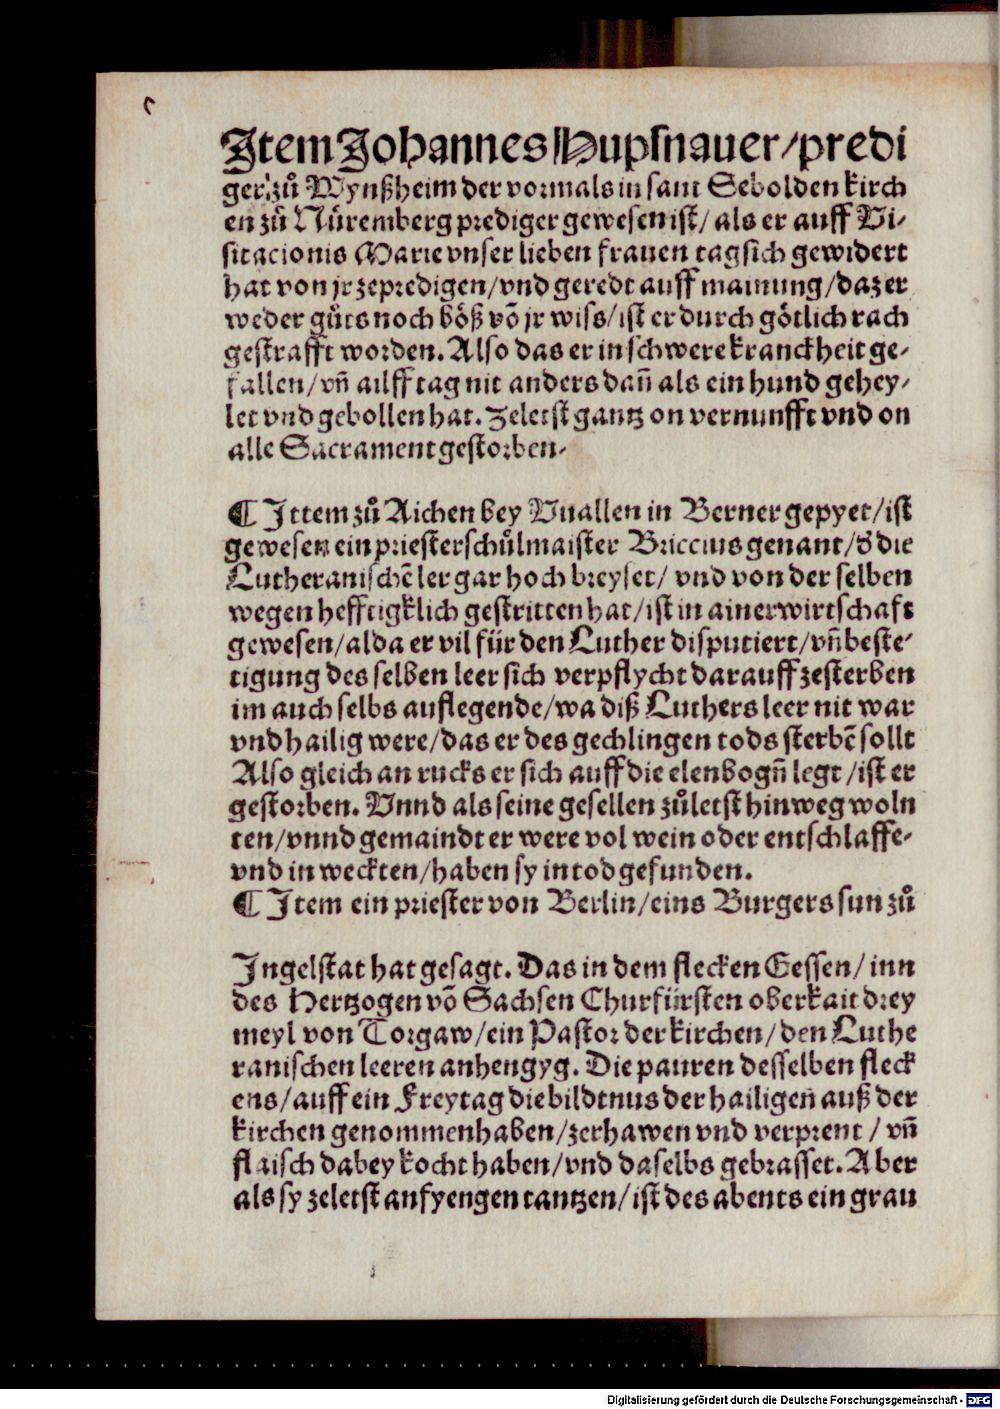 Item Johannes Hupsnauer/predi
ger zů Wynßheim der vormals in sant Sebolden kirch
en zů Nüremberg prediger gewesen ist/ als er auff Vi-
sitacionis Marie vnser lieben frauen tag sich gewidert
hat von jr zepredigen/vnd geredt auff mainung/daz er
weder gůts noch böß võ jr wiss/ist er durch götlich rach
gestrafft worden. Also das er in schwere kranckheit ge-
fallen/vñ ailff tag nit anders dañ als ein hund gehey-
let vnd gebollen hat. Zeletst gantz on vernunfft vnd on
alle Sacrament gestorben.
¶ Ittem zů Aichen bey Vuallen in Berner gepyet/ist
gewesen ein priester schůlmaister Briccius genant/d' die
Lutheranischẽ ler gar hoch breyset/ vnd von der selben
wegen hefftigklich gestritten hat/ist in ainer wirtschaft
gewesen/alda er vil für den Luther disputiert/vñ beste-
tigung des selben leer sich verpflycht darauff zesterben
im auch selbs auflegende/wa diß Luthers leer nit war
vnd hailig were/das er des gechlingen tods sterbẽ sollt
Also gleich an rucks er sich auff die elenbogñ legt/ist er
gestorben. Vnnd als seine gesellen zůletst hinweg woln
ten/vnnd gemaindt er were vol wein oder entschlaffe-
vnd in weckten/haben sy in tod gefunden.
¶ Item ein priester von Berlin/eins Burgers sun zů
Ingelstat hat gesagt. Das in dem flecken Gessen/inn
des Hertzogen võ Sachsen Churfürsten oberkait drey
meyl von Torgaw/ein Pastor der kirchen/den Luthe
ranischen leeren anhengyg. Die pauren desselben fleck
ens/auff ein Freytag die bildtnus der hailigen auß der
kirchen genommen haben/zerhawen vnd verprent/ vñ
flaisch dabey kocht haben/vnd daselbs gebrasset. Aber
als sy zeletst anfyengen tantzen/ist des abents ein grau
Digitalisierung gefördert durch die Deutsche Forschungsgemeinschaft - DFG